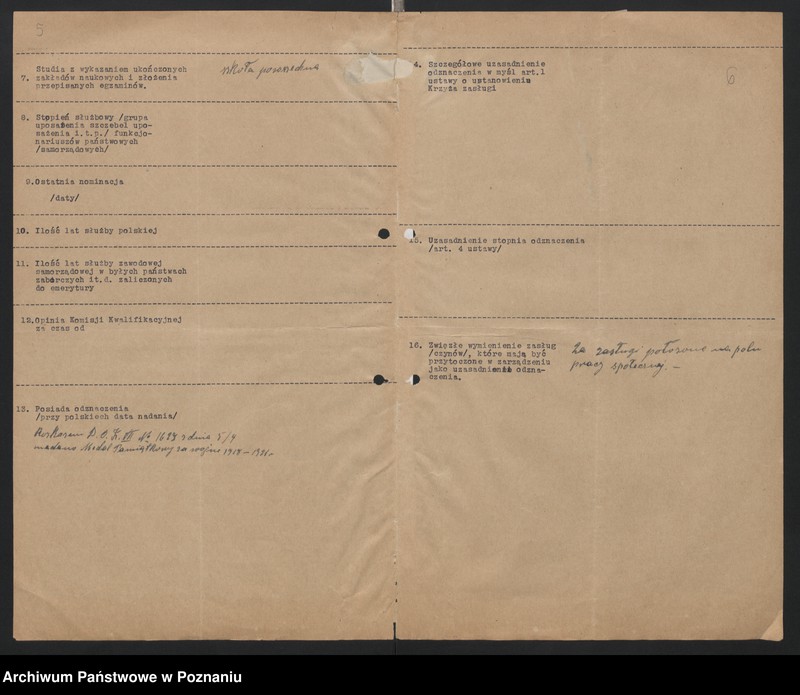 5
7. Studia z wykazaniem ukończonych
zakładów naukowych i złożenia
przepisanych egzaminów.
szkoła powszechna
8. Stopień służbowy /grupa
uposażenia szczebel upo-
sażenia i.t.p./ funkcjo-
nariuszów państwowych
/samorządowych/
9. Ostatnia nominacja
/daty/
10. Ilość lat służby polskiej
11. Ilość lat służby zawodowej
samorządowej w byłych państwach
zaborczych it.d. zaliczonych
do emerytury
12. Opinia Komisji Kwalifikacyjnej
za czas od
13. Posiada odznaczenia
/przy polskich data nadania/
Rozkazem D.O.K. VII № 1687 z dnia 5/9
nadano Medal Pamiątkowy za wojnę 1918-1921r.
6
4. Szczegółowe uzasadnienie
odznaczenia w myśl art.1
ustawy o ustanowieniu
Krzyża zasługi
15. Uzasadnienie stopnia odznaczenia
/art. 4 ustawy/
16. Zwięzłe wymienienie zasług
/czynów/, które mają być
przytoczone w zarządzeniu
jako uzasadnienie odzna-
czenia.
Za zasługi położone na polu
pracy społecznej. -
Archiwum Państwowe w Poznaniu